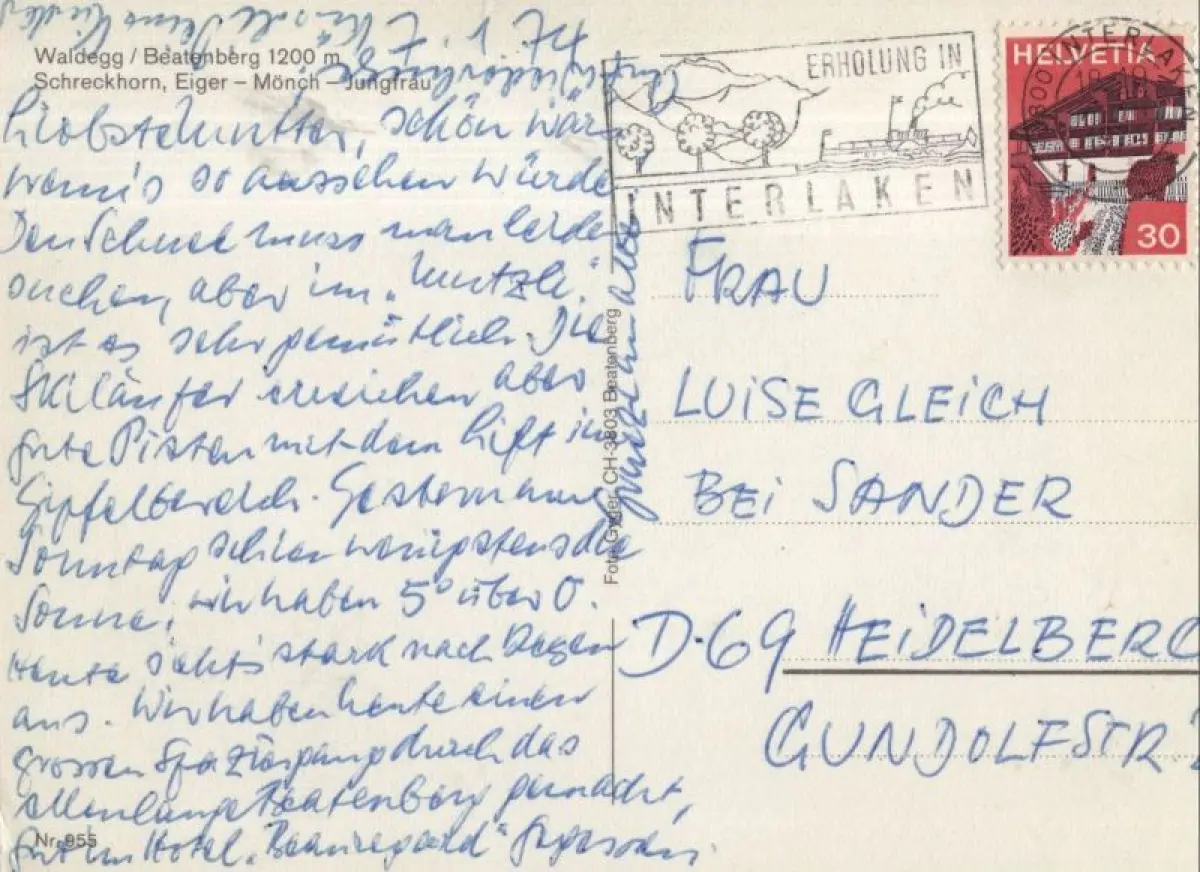 Waldegg / Beatenberg 1200 m
Schreckhorn, Eiger – Mönch – Jungfrau
Liebste Mutter, schön wär
wenn's so aussehen würde
Den Schnee muss man leider
suchen, aber im „Mutzli"
ist es sehr gemütlich. Die
Skiläufer erreichen aber
gute Pisten mit dem Lift im
Gipfelbereich. Gestern am
Sonntag schien wenigstens die
Sonne, wir haben 5° über 0.
Heute sieht's stark nach Regen
aus. Wir haben heute einen
grossen Spaziergang durch das
ellenlange Beatenberg gemacht,
gut im Hotel „Beauregard" gegessen.
Nr. 955
Foto Gyger, CH-3803 Beatenberg
ERHOLUNG IN
INTERLAKEN
3800 INTERLAKEN
HELVETIA
30
FRAU
LUISE GLEICH
BEI SANDER
D-69 HEIDELBERG
GUNDOLFSTR.